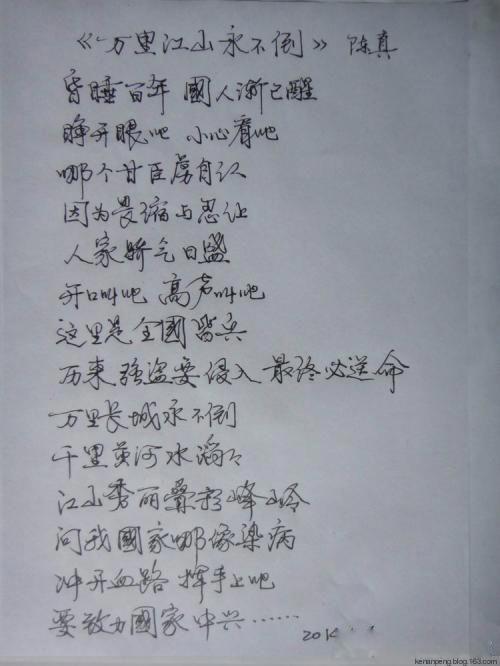 《万里江山永不倒》 陈真
昏睡百年 國人渐已醒
睁开眼吧 小心看吧
哪个甘臣虏自认
因为畏缩与忍让
人家骄气日盛
开口叫吧 高声叫吧
这里是全國皆兵
历来强盗要侵入 最终必送命
万里长城永不倒
千里黄河水滔々
江山秀丽叠彩峰岭
问我國家哪像染病
冲开血路 挥手上吧
要致力國家中兴……
kenanpeng.blog.163.com